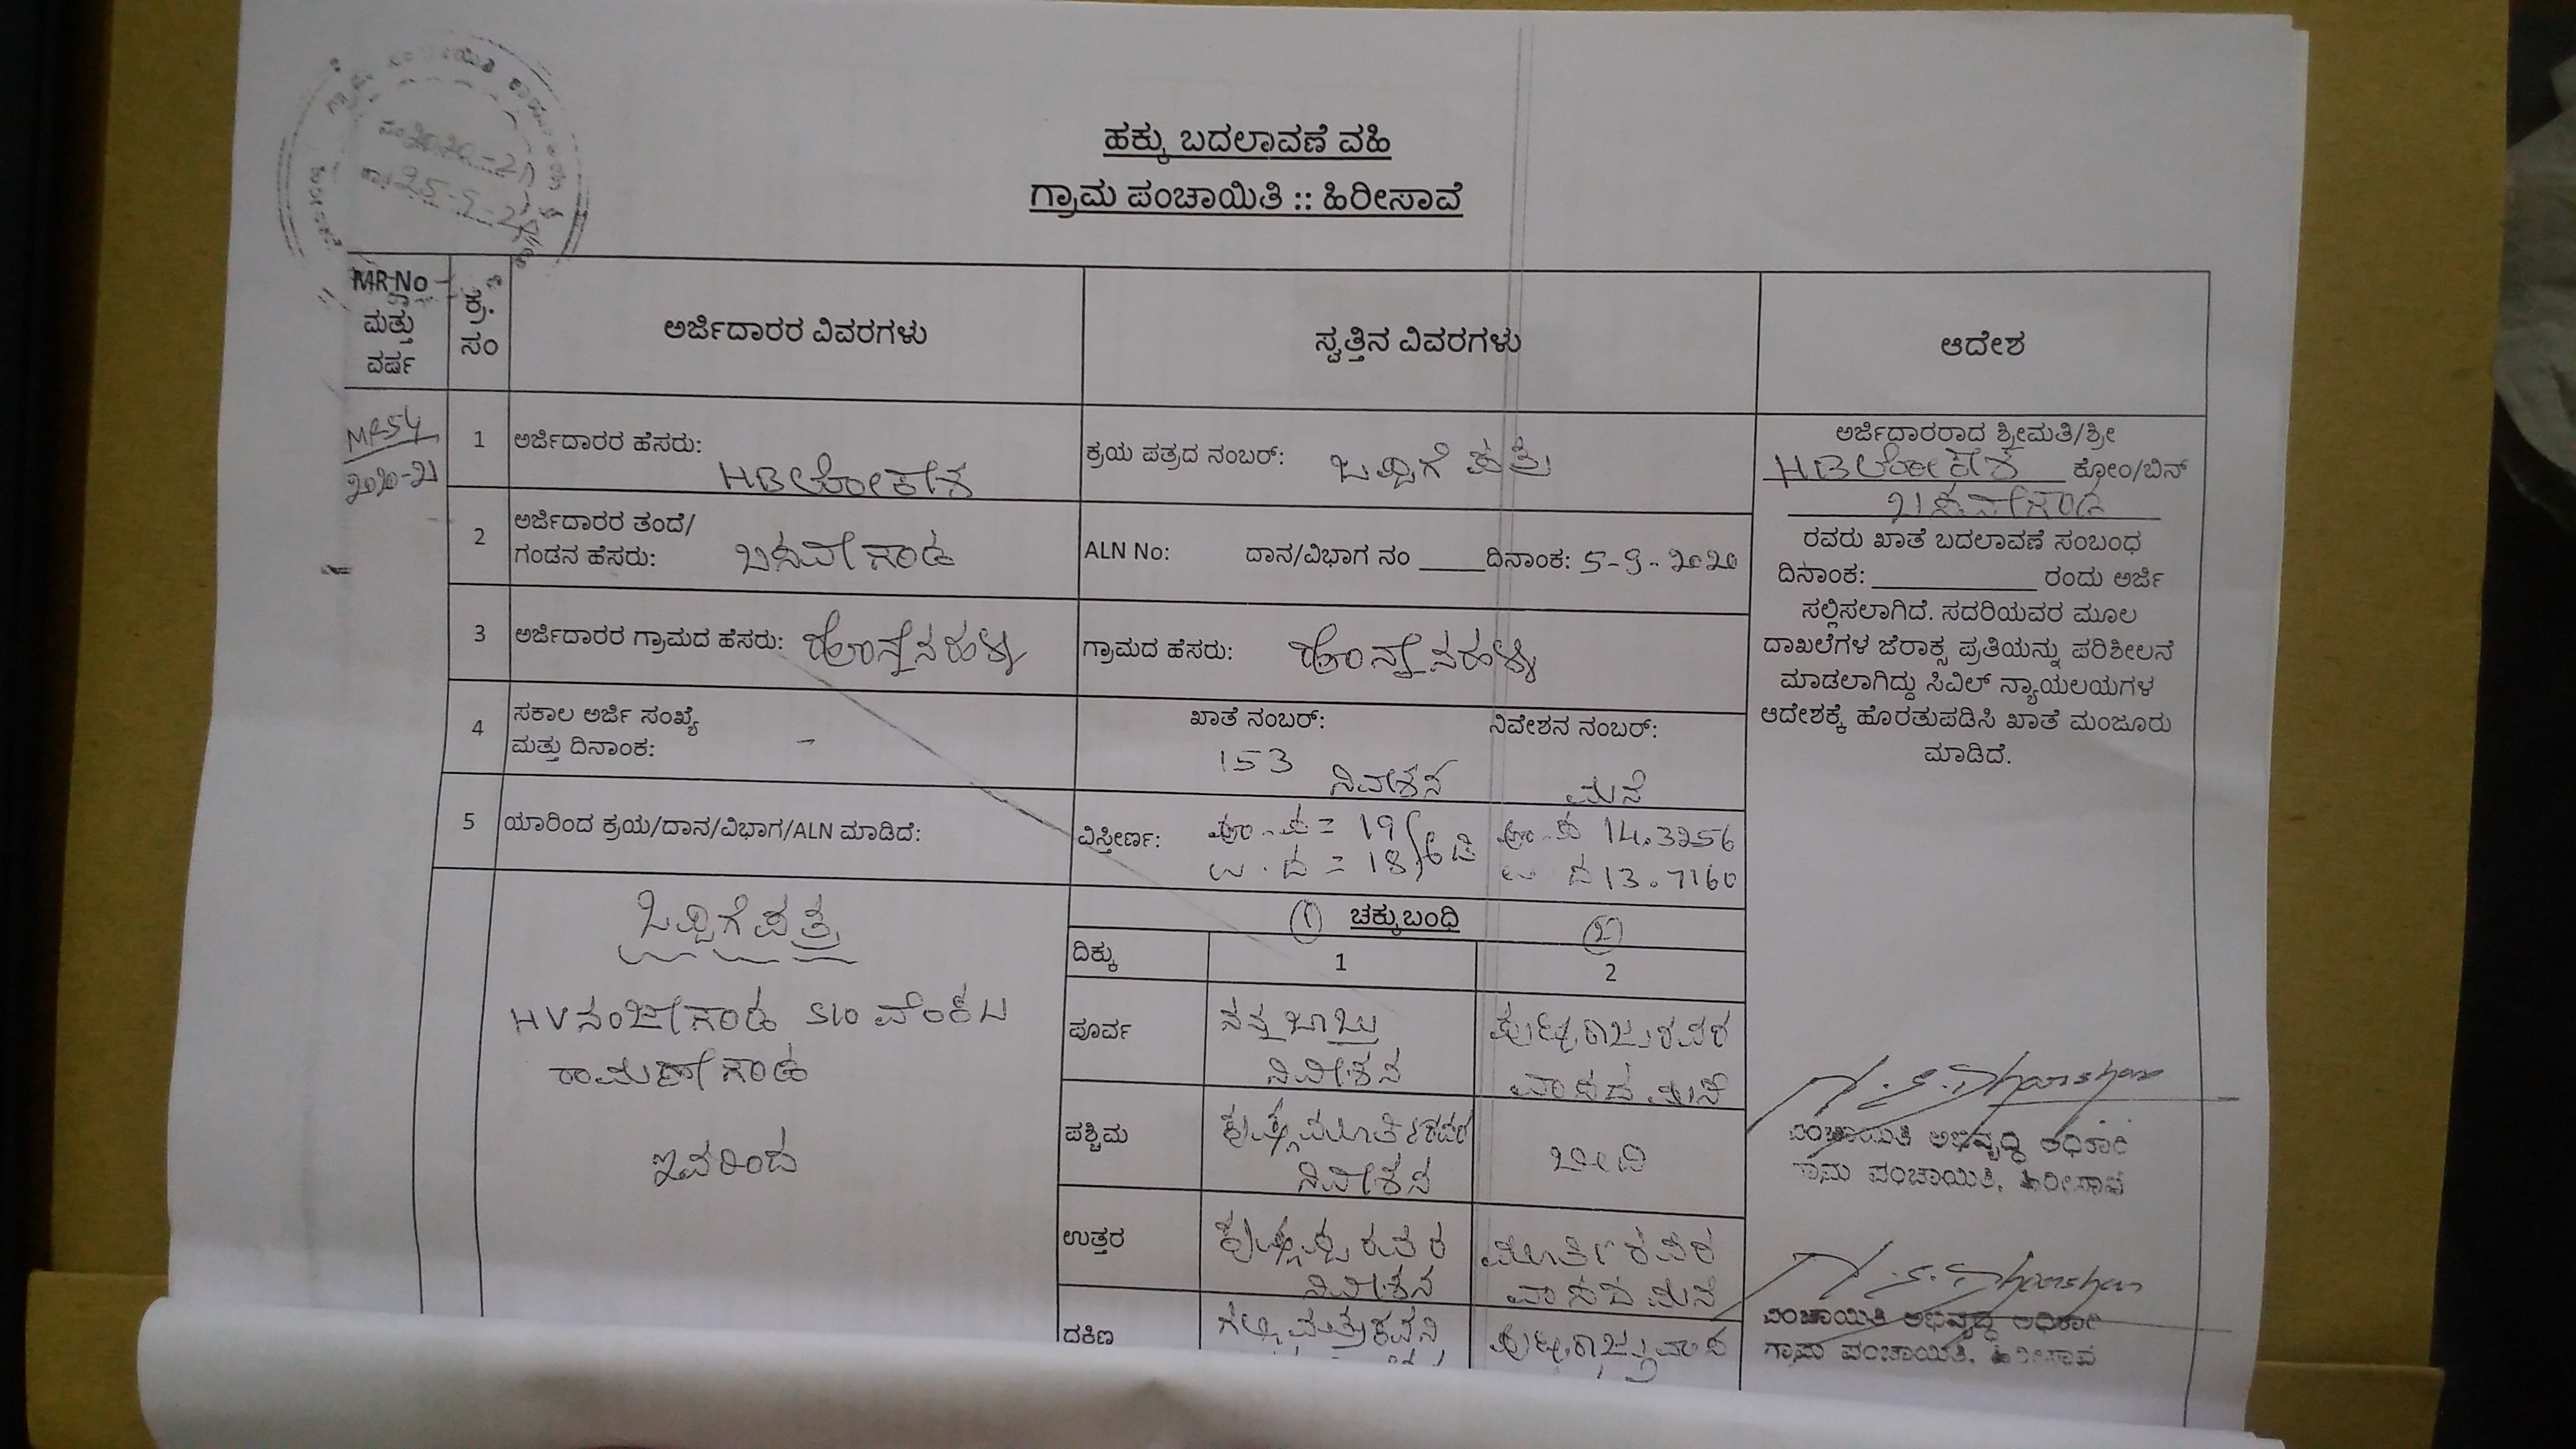 ಹಕ್ಕು ಬದಲಾವಣೆ ವಹಿ
ಗ್ರಾಮ ಪಂಚಾಯಿತಿ :: ಹಿರೀಸಾವೆ
MR No ಮತ್ತು ವರ್ಷ
ಕ್ರ. ಸಂ
ಅರ್ಜಿದಾರರ ವಿವರಗಳು
ಸ್ವತ್ತಿನ ವಿವರಗಳು
ಆದೇಶ
MR54
2020-21
1 ಅರ್ಜಿದಾರರ ಹೆಸರು:
HB ಲೋಕೇಶ
ಕ್ರಯ ಪತ್ರದ ನಂಬರ್: ಒಪ್ಪಿಗೆ ಪತ್ರ
2 ಅರ್ಜಿದಾರರ ತಂದೆ/
ಗಂಡನ ಹೆಸರು: ಬಸವೇಗೌಡ
ALN No: ದಾನ/ವಿಭಾಗ ನಂ ____ ದಿನಾಂಕ: 5-9-2020
3 ಅರ್ಜಿದಾರರ ಗ್ರಾಮದ ಹೆಸರು: ಹೊನ್ನೇನಹಳ್ಳಿ
ಗ್ರಾಮದ ಹೆಸರು: ಹೊನ್ನೇನಹಳ್ಳಿ
4 ಸಕಾಲ ಅರ್ಜಿ ಸಂಖ್ಯೆ
ಮತ್ತು ದಿನಾಂಕ: -
ಖಾತೆ ನಂಬರ್: ನಿವೇಶನ ನಂಬರ್:
153
ನಿವೇಶನ ಮನೆ
5 ಯಾರಿಂದ ಕ್ರಯ/ದಾನ/ವಿಭಾಗ/ALN ಮಾಡಿದೆ:
ವಿಸ್ತೀರ್ಣ: ಪೂ.ಪ = 19 ಅಡಿ ಪೂ.ಪ 14.3256
ಉ.ದ = 18 ಉ ದ 13.7160
ಒಪ್ಪಿಗೆ ಪತ್ರ
HV ನಂಜೇಗೌಡ S/o ವೆಂಕಟ
ರಾಮೇಗೌಡ
ಇವರಿಂದ
(1) ಚಕ್ಕುಬಂಧಿ (2)
ದಿಕ್ಕು 1 2
ಪೂರ್ವ
ನಿವೇಶನ
ವಾಸದ ಮನೆ
ಪಶ್ಚಿಮ
ನಿವೇಶನ
ಬೀದಿ
ಉತ್ತರ
ನಿವೇಶನ
ಮೂರ್ತಿರವರ
ವಾಸದ ಮನೆ
ದಕ್ಷಿಣ
ಅರ್ಜಿದಾರರಾದ ಶ್ರೀಮತಿ/ಶ್ರೀ
HB ಲೋಕೇಶ ಕೋಂ/ಬಿನ್
ಬಸವೇಗೌಡ
ರವರು ಖಾತೆ ಬದಲಾವಣೆ ಸಂಬಂಧ
ದಿನಾಂಕ: ____________ ರಂದು ಅರ್ಜಿ
ಸಲ್ಲಿಸಲಾಗಿದೆ. ಸದರಿಯವರ ಮೂಲ
ದಾಖಲೆಗಳ ಜೆರಾಕ್ಸ ಪ್ರತಿಯನ್ನು ಪರಿಶೀಲನೆ
ಮಾಡಲಾಗಿದ್ದು ಸಿವಿಲ್ ನ್ಯಾಯಲಯಗಳ
ಆದೇಶಕ್ಕೆ ಹೊರತುಪಡಿಸಿ ಖಾತೆ ಮಂಜೂರು
ಮಾಡಿದೆ.
ಪಂಚಾಯಿತಿ ಅಭಿವೃದ್ಧಿ ಅಧಿಕಾರಿ
ಗ್ರಾಮ ಪಂಚಾಯಿತಿ, ಹಿರೀಸಾವೆ
ಪಂಚಾಯಿತಿ ಅಭಿವೃದ್ಧಿ ಅಧಿಕಾರಿ
ಗ್ರಾಮ ಪಂಚಾಯಿತಿ, ಹಿರೀಸಾವೆ